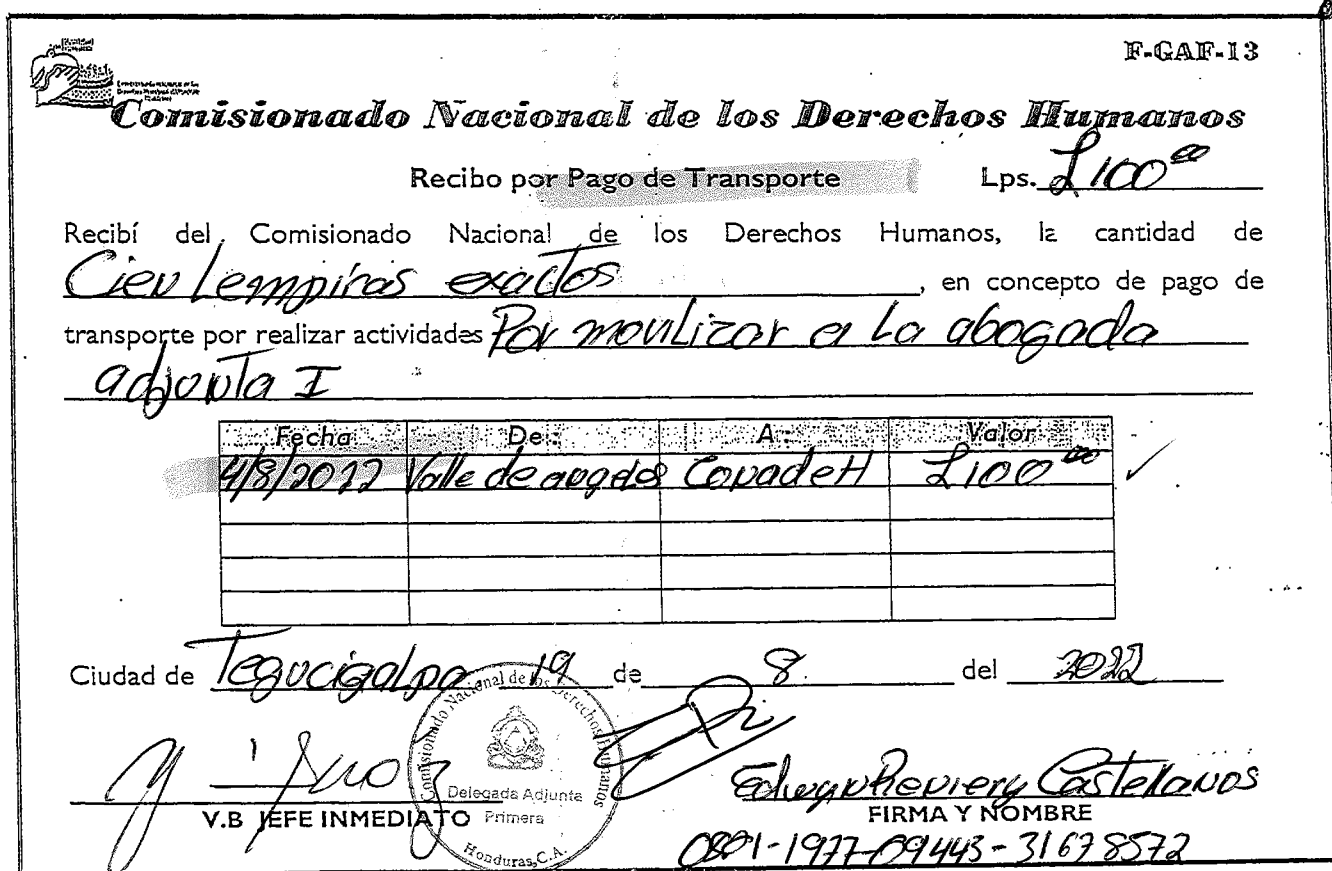 F-GAF-13
Comisionado Nacional de los Derechos Humanos
Recibo por Pago de Transporte Lps. L100.00
Recibí del Comisionado Nacional de los Derechos Humanos, la cantidad de
Cien Lempiras exactos, en concepto de pago de
transporte por realizar actividades Por movilizar a La abogada
adjonta I
Fecha De: A: Valor
4/8/2022 Valle de CopadeH L100.00
Ciudad de Tegucigalpa 19 de 8 del 2022
Comisionado Nacional de los Derechos Humanos
Delegada Adjunta
Primera
Honduras, C.A.
V.B JEFE INMEDIATO
Castellanos
FIRMA Y NOMBRE
0801-1977-09443-31678572